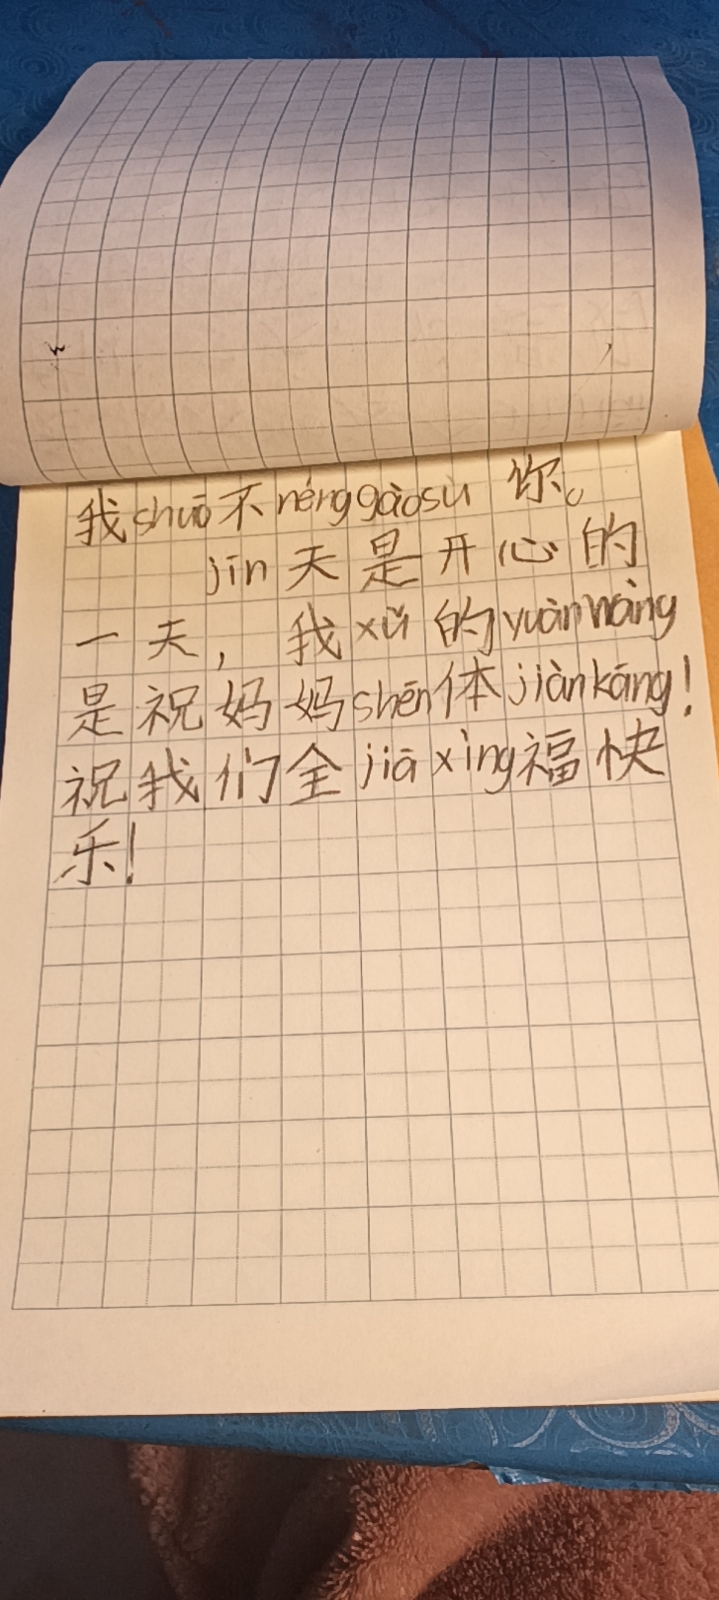 我shuō不nénggàosù你。
jīn天是开心的
一天，我xǔ的yuànwàng
是祝妈妈shēn体jiànkāng！
祝我们全jiāxìng福快
乐！